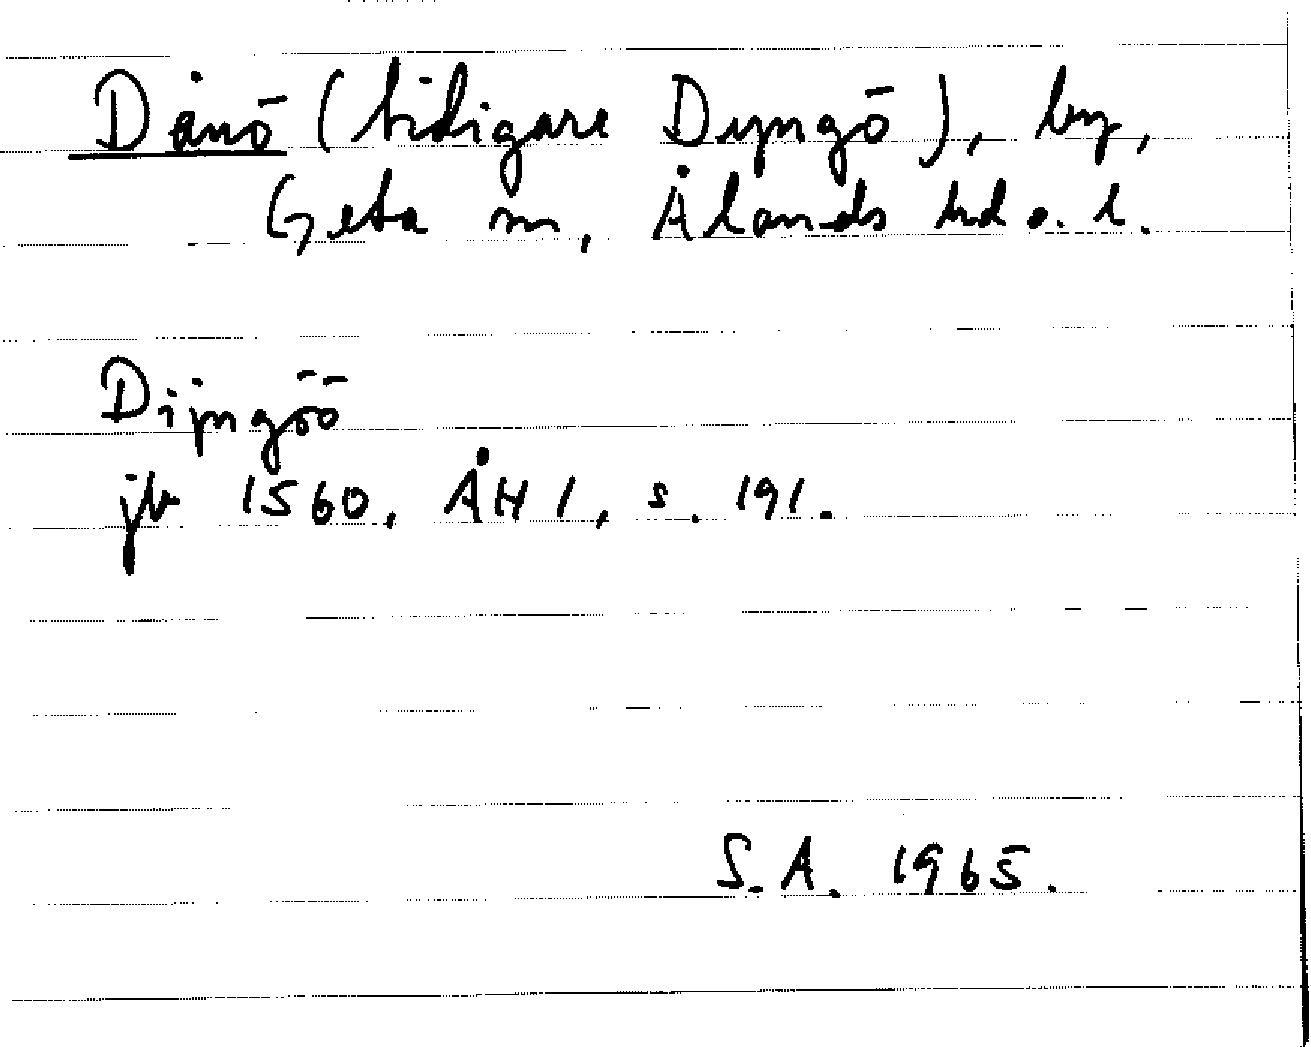 Dånö (tidigare Dyngö), by,
Geta sn, Ålands hd o. l.
Dijngöö
jb 1560, ÅH 1, s. 191.
S.A. 1965.